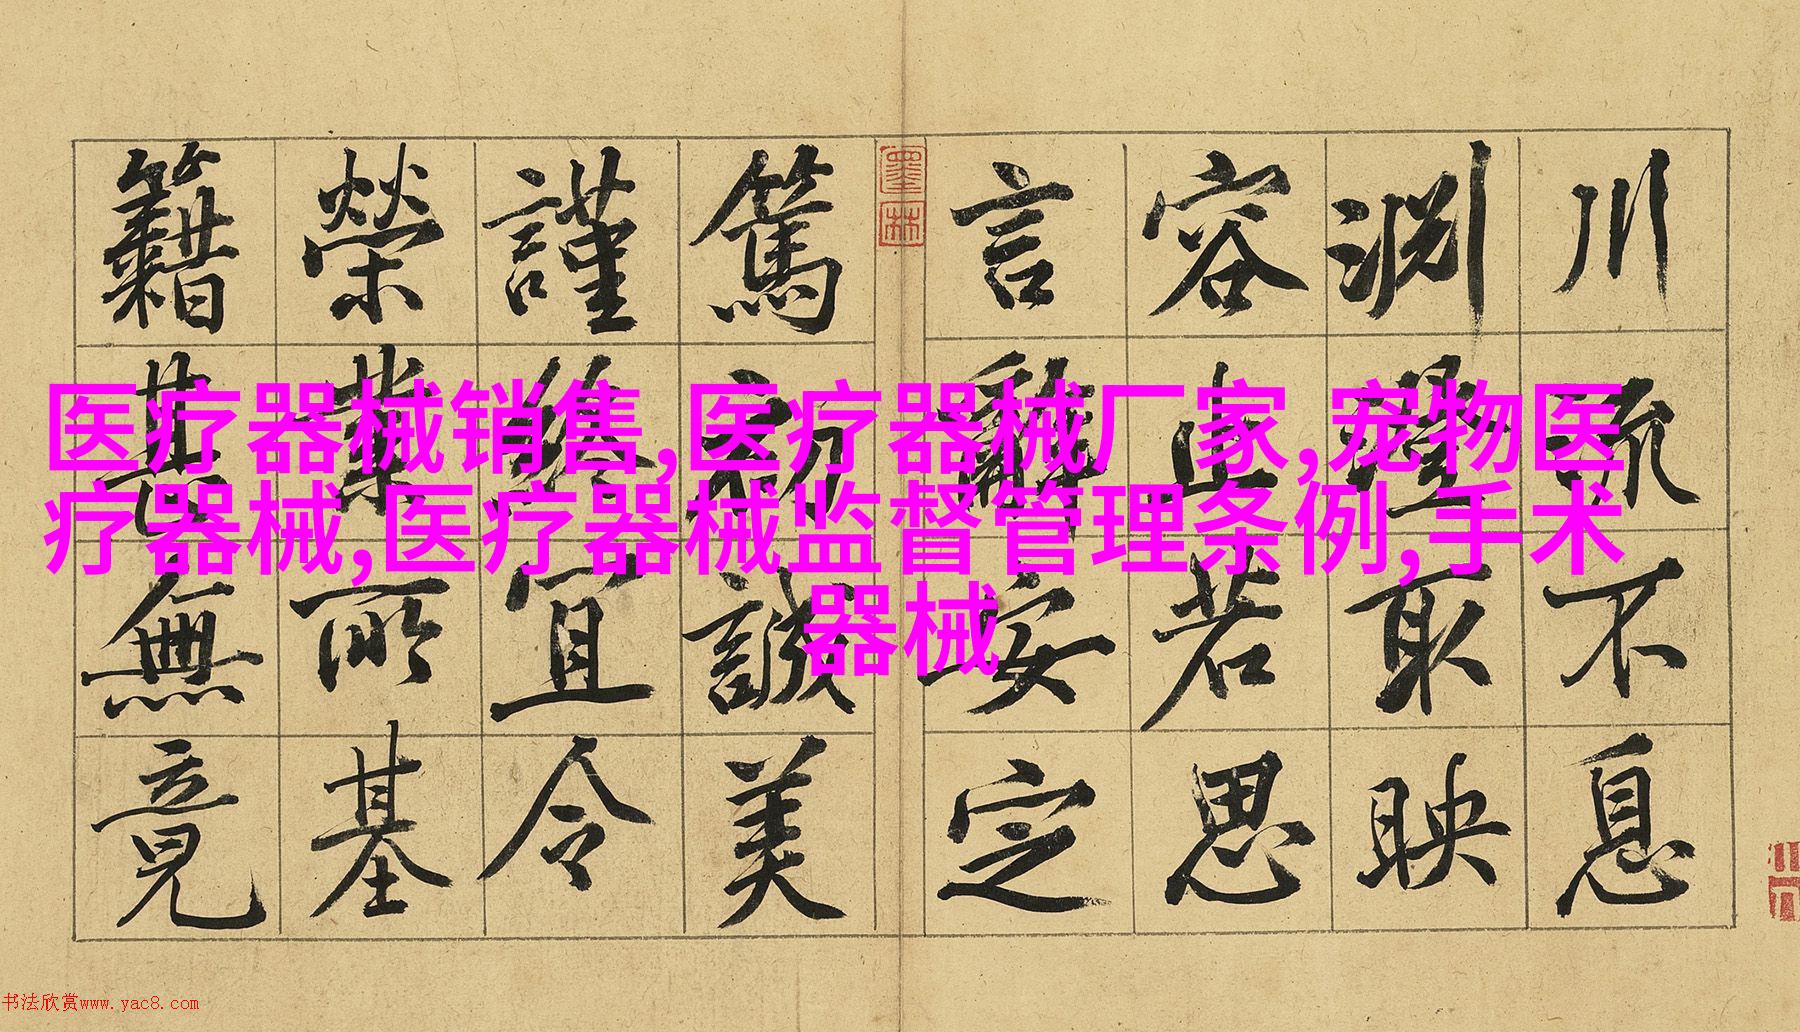 川流不息
淵澄取映
容止若思
言辭安定
墨林
篤初誠美
謹終宜令
榮業所基
籍甚無竟
医疗器械销售,医疗器械厂家,宠物医
疗器械,医疗器械监督管理条例,手术
器械
书法欣赏www.yac8.com